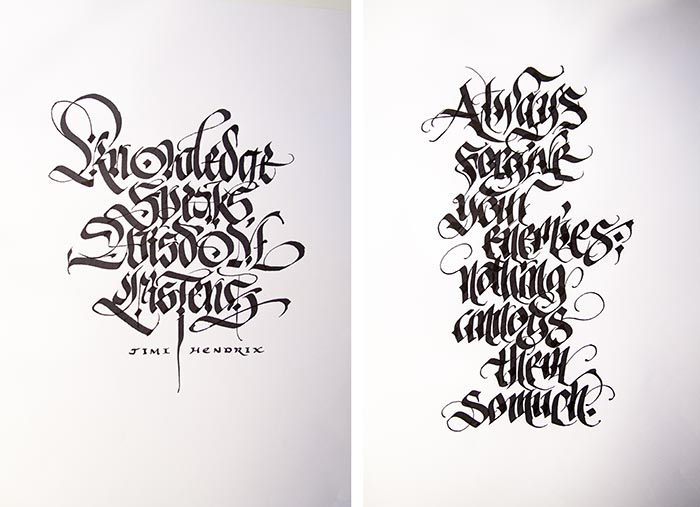 Knowledge
Speaks,
Wisdom
Listens
JIMI HENDRIX
Always
forgive
your
enemies;
nothing
annoys
them
so much.